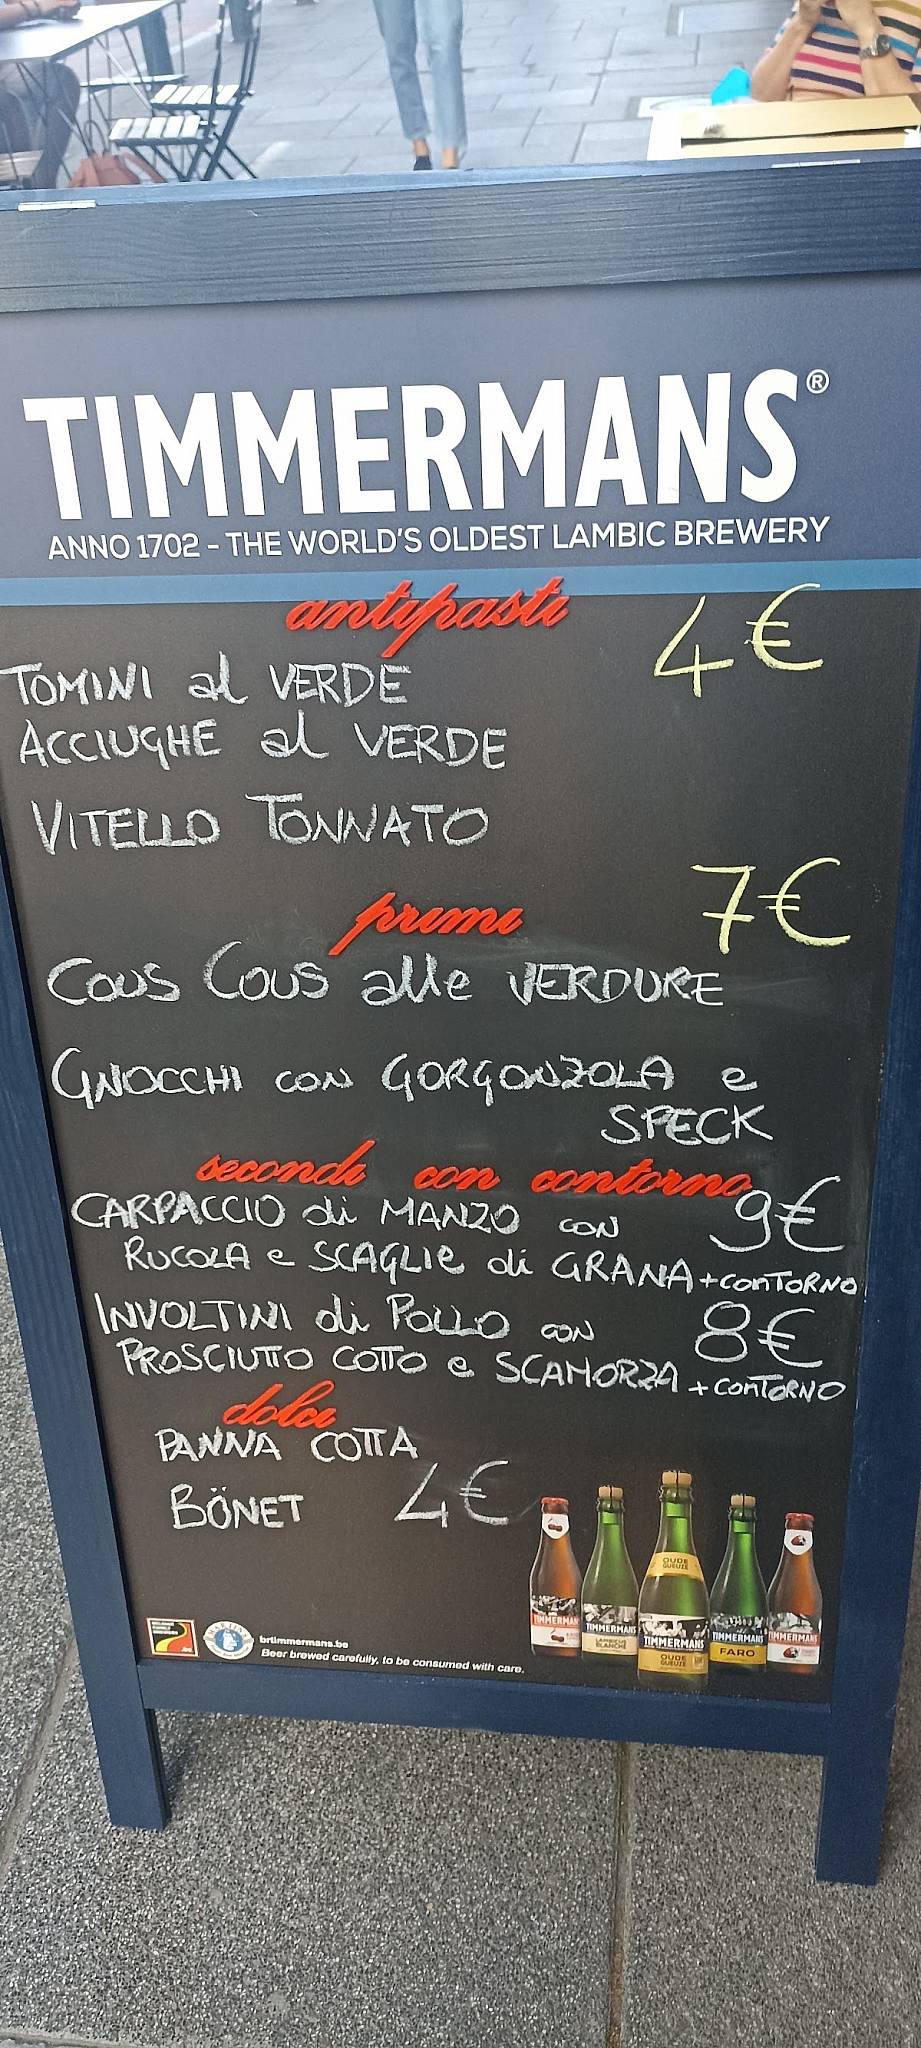 TIMMERMANS®
ANNO 1702 - THE WORLD'S OLDEST LAMBIC BREWERY
antipasti 4€
TOMINI al VERDE
ACCIUGHE al VERDE
VITELLO TONNATO
primi 7€
COUS COUS alle VERDURE
GNOCCHI con GORGONZOLA e
SPECK
secondi con contorno
CARPACCIO di MANZO con 9€
RUCOLA e SCAGLIE di GRANA + CONTORNO
INVOLTINI di POLLO con 8€
PROSCIUTTO COTTO e SCAMORZA + CONTORNO
dolci
PANNA COTTA
BÖNET 4€
OUDE
GUEUZE
TIMMERMANS
TIMMERMANS
LAMBICUS
BLANCHE
TIMMERMANS
OUDE
GUEUZE
TIMMERMANS
FARO
TIMMERMANS
brtimmermans.be
Beer brewed carefully, to be consumed with care.